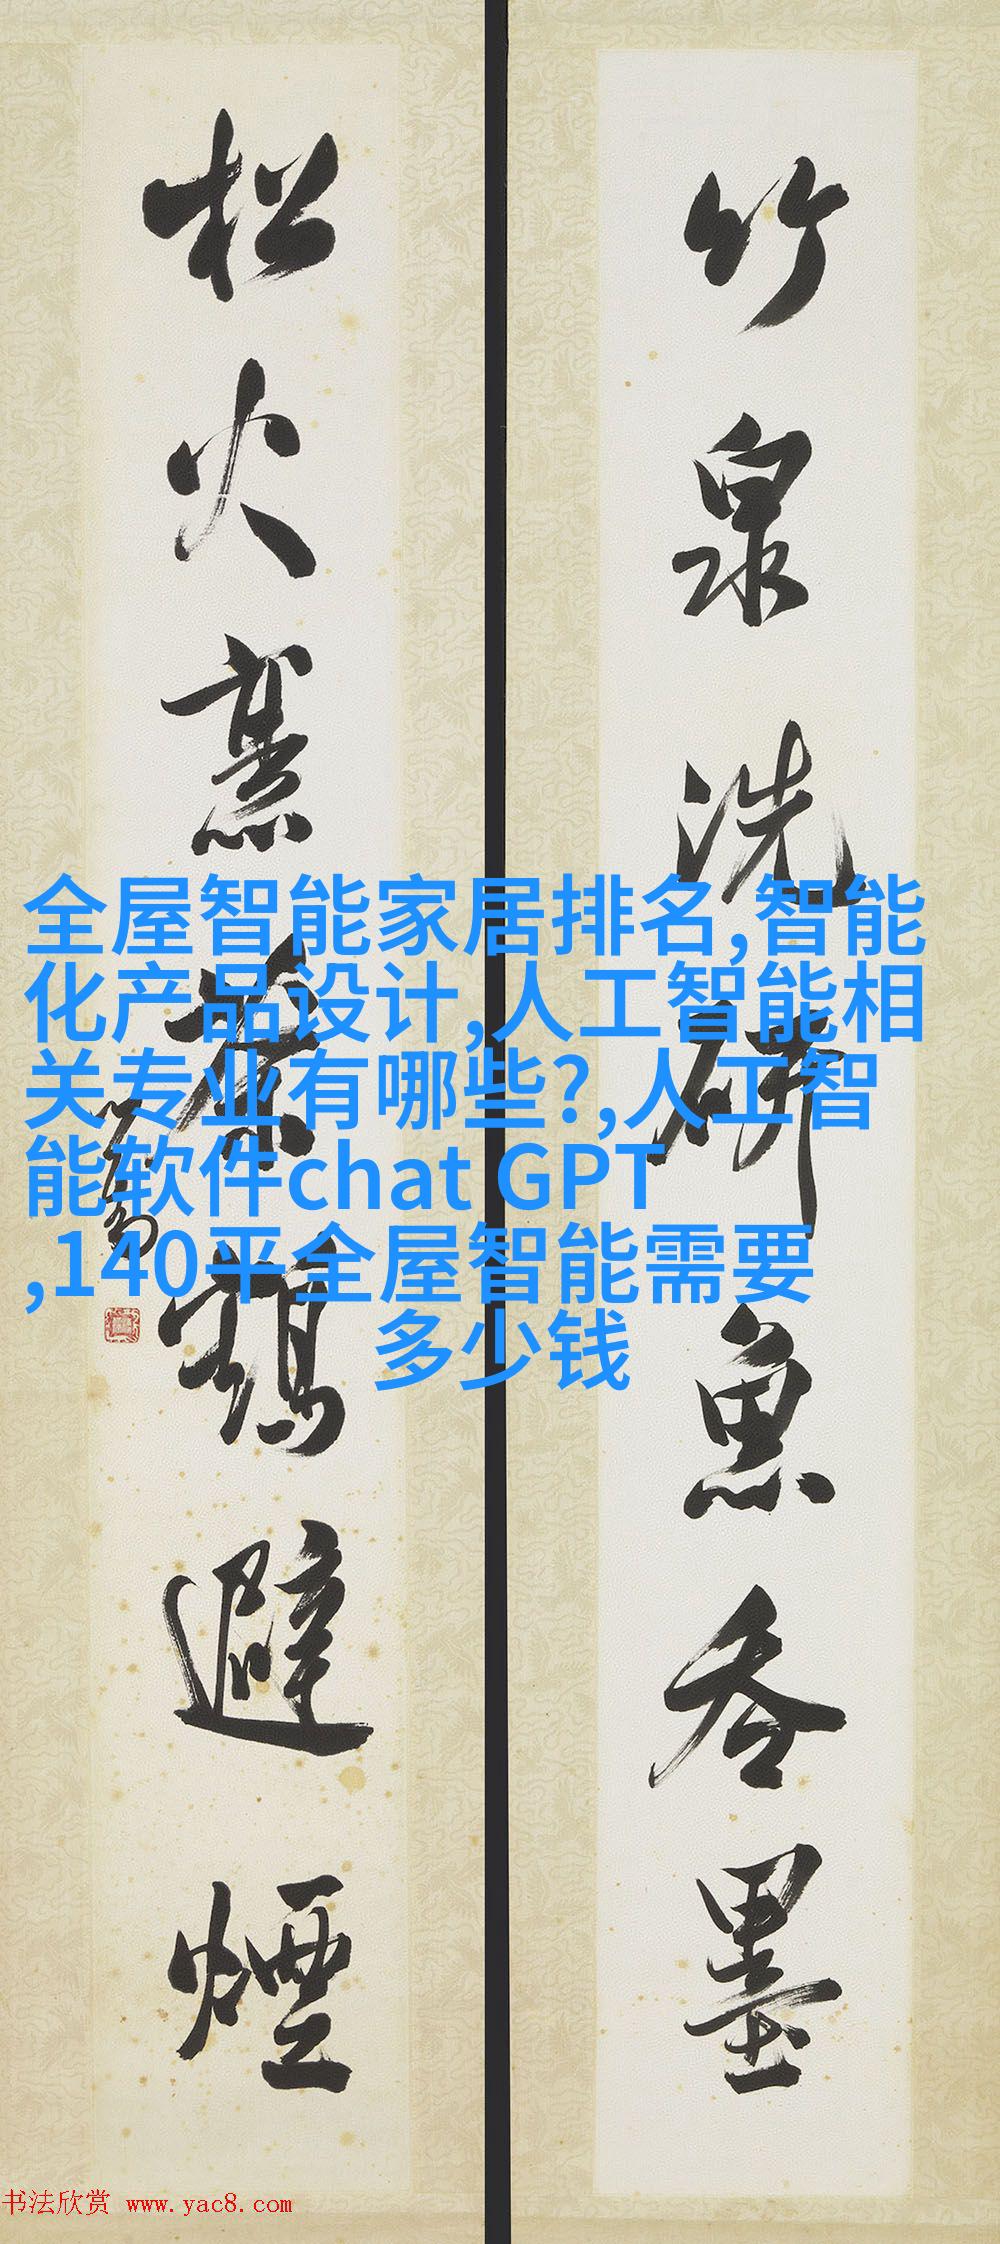 竹泉洗研魚吞墨
松火烹茶鶴避煙
全屋智能家居排名,智能
化产品设计,人工智能相
关专业有哪些?,人工智
能软件chat GPT
,140平全屋智能需要
多少钱
书法欣赏 www.yac8.com